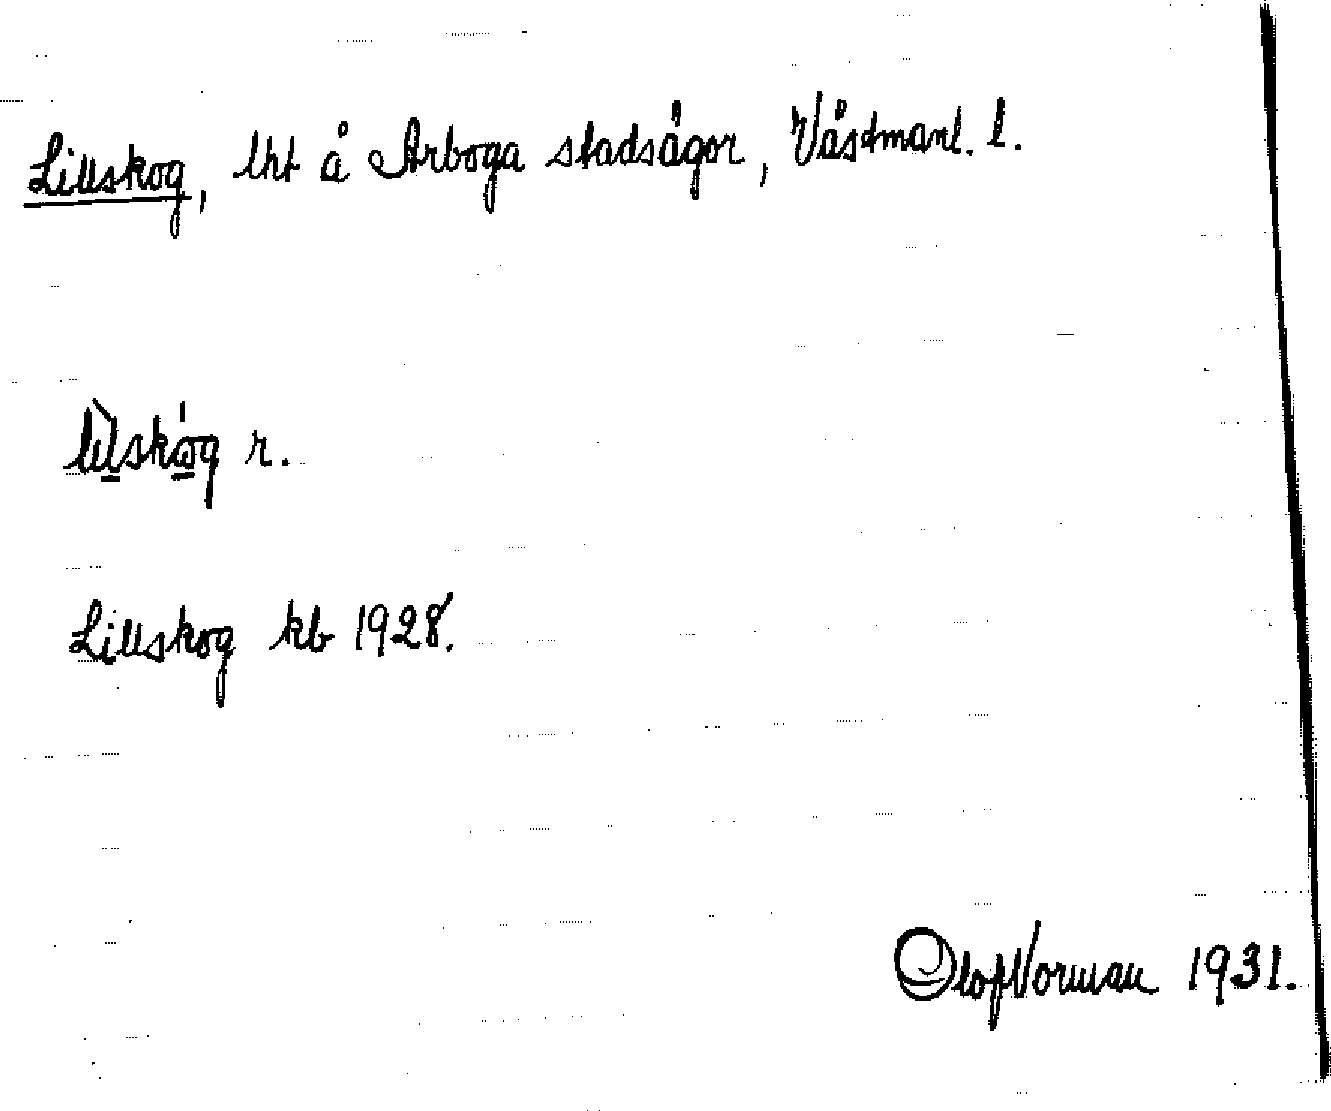 Lillskog, lht å Arboga stadsägor, Västmanl. l.
lìlskóg r.
Lillskog kb 1928.
Olof Vorman 1931.